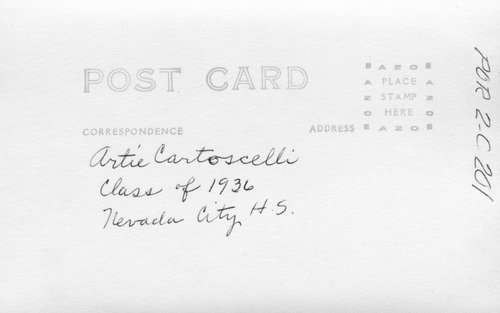 POST CARD
AZO
PLACE
STAMP
HERE
AZO
CORRESPONDENCE
ADDRESS
Artie Cartoscelli
Class of 1936
Nevada City H.S.
POR 2-C 201